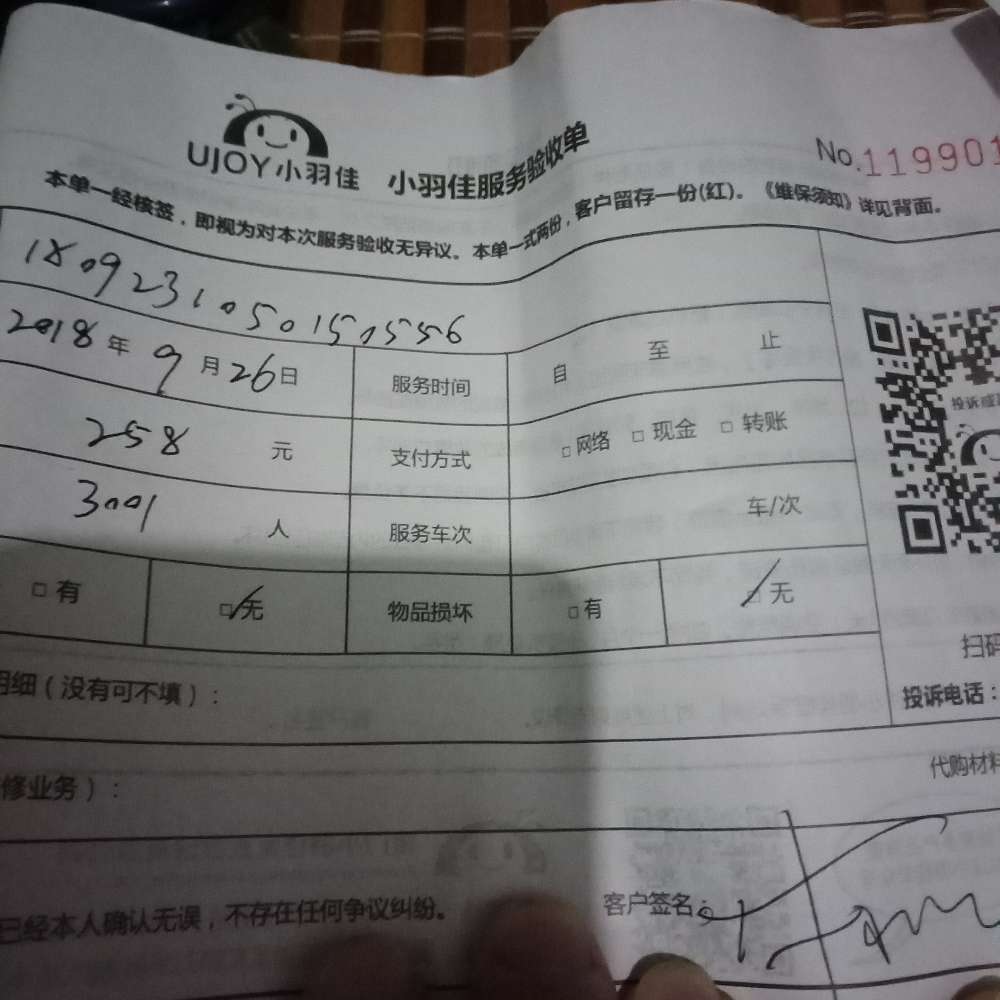 UJOY小羽佳 小羽佳服务验收单 No.119901
本单一经核签，即视为对本次服务验收无异议。本单一式两份，客户留存一份(红)。《维保须知》详见背面。
1809231050150556
2018年9月26日 服务时间 自 至 止
258 元 支付方式 □网络 □现金 □转账
3001 人 服务车次 车/次
□有 □无 物品损坏 □有 □无
投诉
扫码
明细（没有可不填）： 投诉电话：
修业务）： 代购材料
已经本人确认无误，不存在任何争议纠纷。 客户签名：